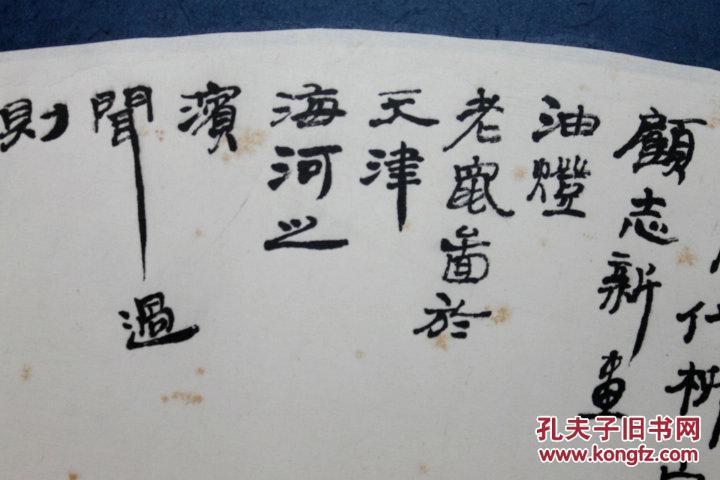 仕
顧志新画
油燈
老鼠畵於
天津
海河之
濱
聞過
則
孔夫子旧书网
www.kongfz.com